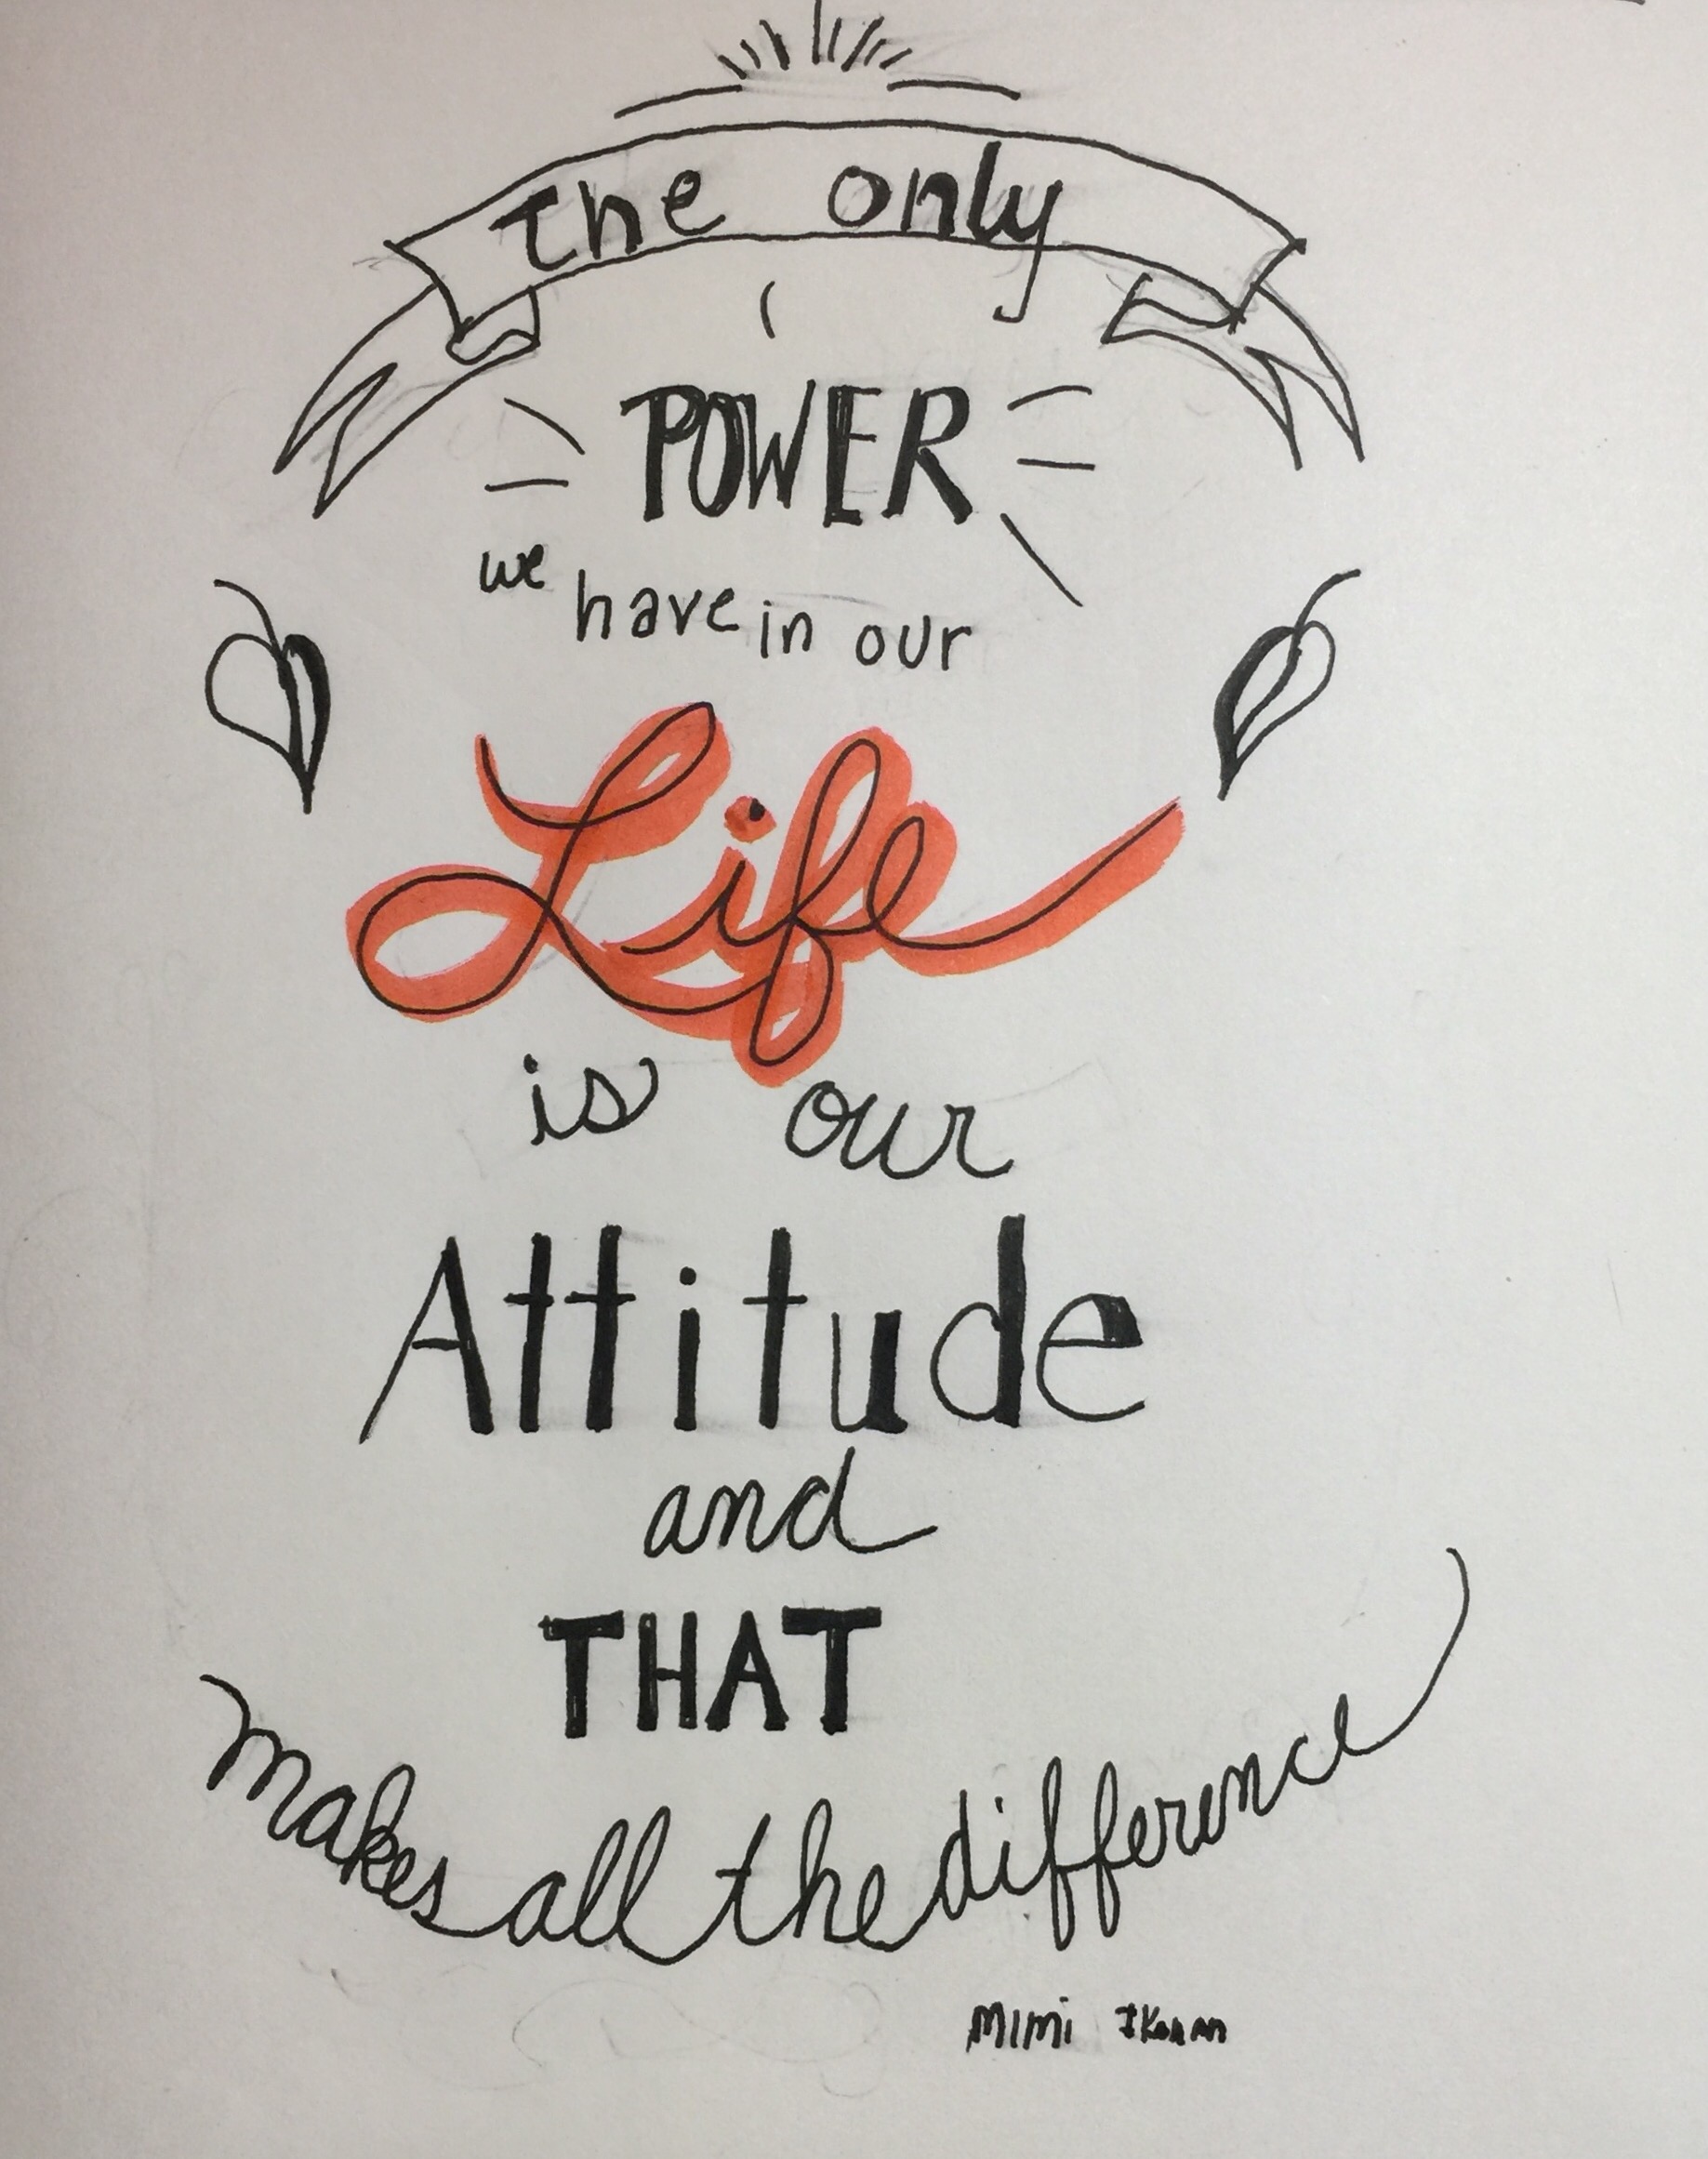 the only
POWER
we have in our
Life
is our
Attitude
and
THAT
makes all the difference
Mimi Ikonn